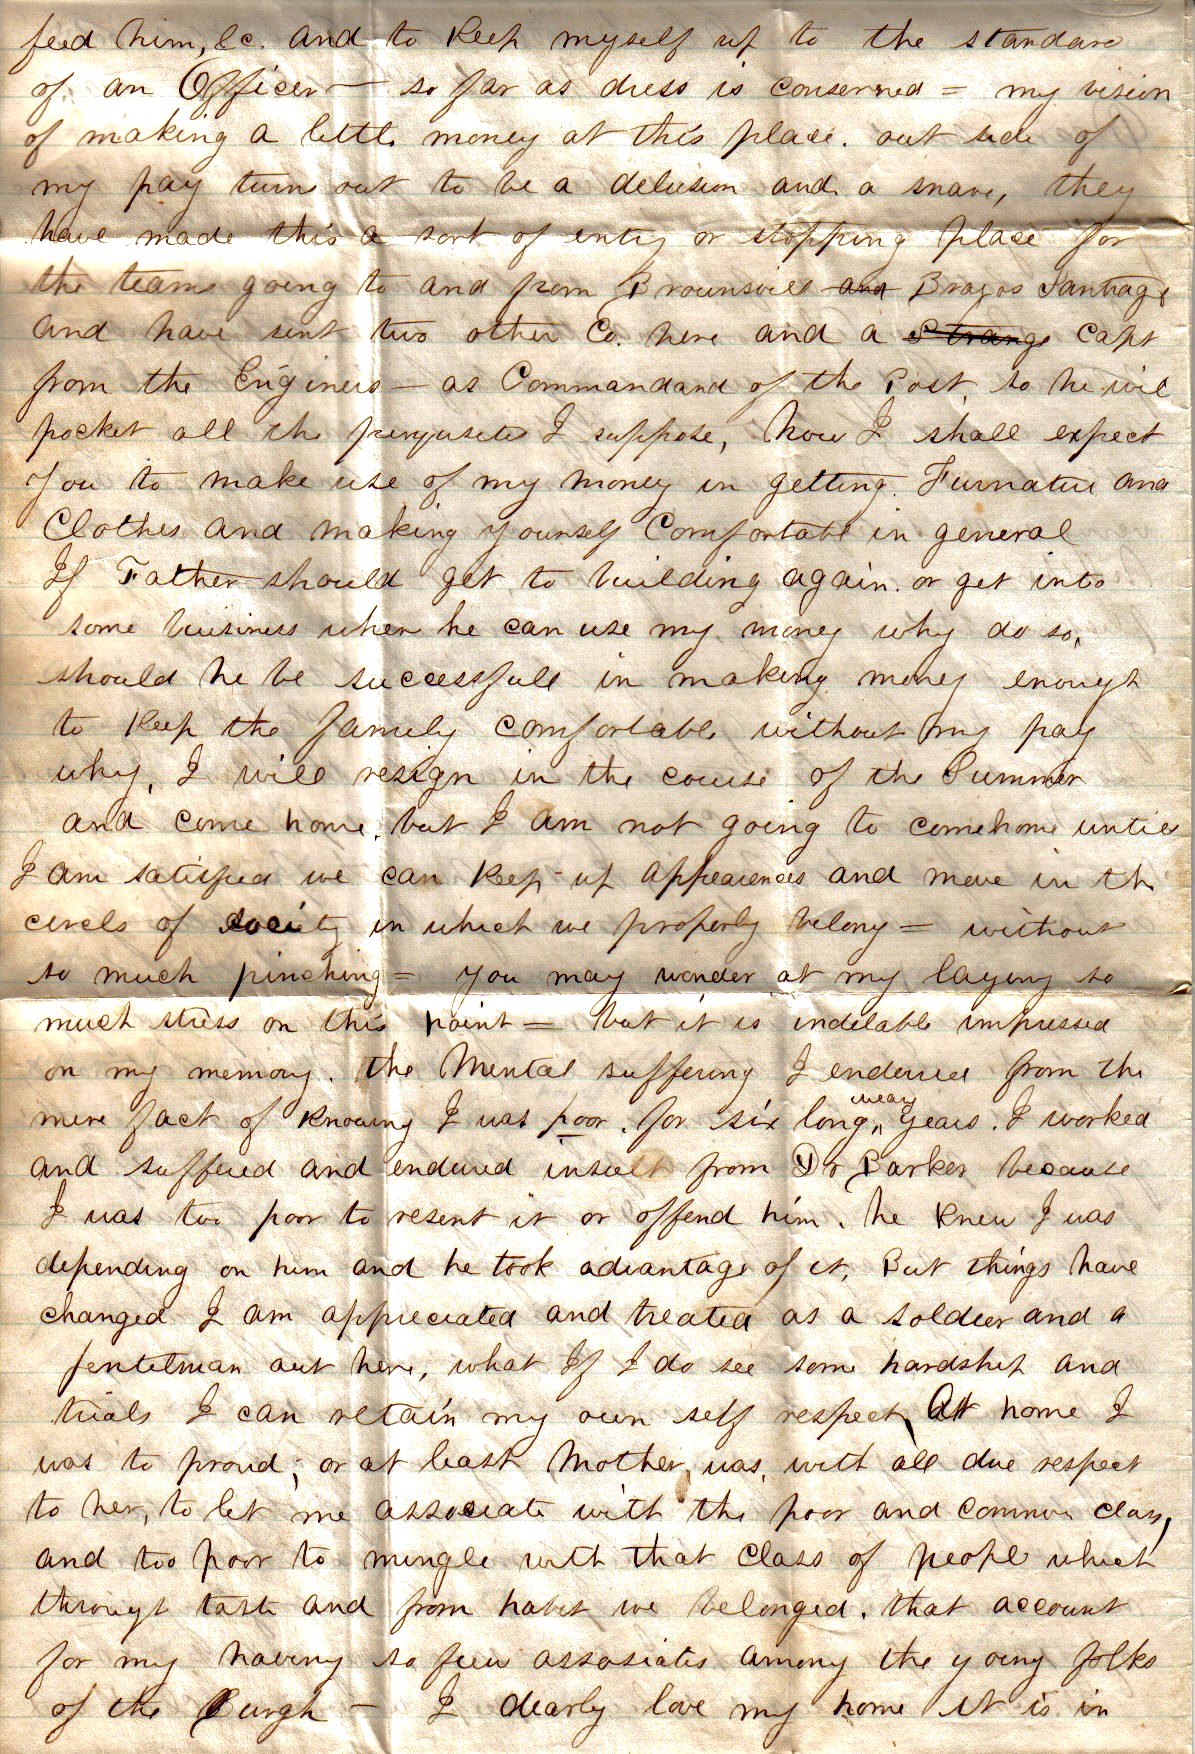 feed him, &c. and to Keep myself up to the standard
of an Officer — so far as dress is conserned = my vision
of making a little money at this place. out side of
my pay turns out to be a delusion and a snare, they
have made this a sort of entry or stopping place for
the teams going to and from Brounsvill and Brazos Santiago
and have sent two other Co. here and a Strange Capt
from the Engineers — as Commandand of the Post, so he will
pocket all the perqusites I suppose, Now I shall expect
you to make use of my money in getting Furnature and
Clothes and making yourself Comfortabl in general
If Father should get to building again. or get into
some buisiness where he can use my money why do so,
should he be successfull in making money enough
to Keep the family comfortable without my pay
why, I will resign in the course of the Summer
and come home, but I am not going to come home untill
I am satisfied we can Keep up appearences and move in the
circls of society in which we properly belong = without
so much pinching = you may wonder at my laying so
much stress on this point = but it is indelable impressed
on my memory. the Mental suffering I endured from the
mere fact of Knowing I was poor. for six long, weary years. I worked
and suffered and endured insult from Dr Parker because
I was too poor to resent it or offend him. he Knew I was
depending on him and he took advantage of it, But things have
changed I am appreciated and treated as a soldier and a
gentelman out here, what If I do see some hardship and
trials I can retain my own self respect, At home I
was to proud, or at least Mother, was, with all due respect
to her, to let me associate with the poor and common class,
and too poor to mingle with that Class of peopl which
through taste and from habit we belonged. that account
for my having so few assosiates among the young folks
of the Burgh — I dearly love my home it is in